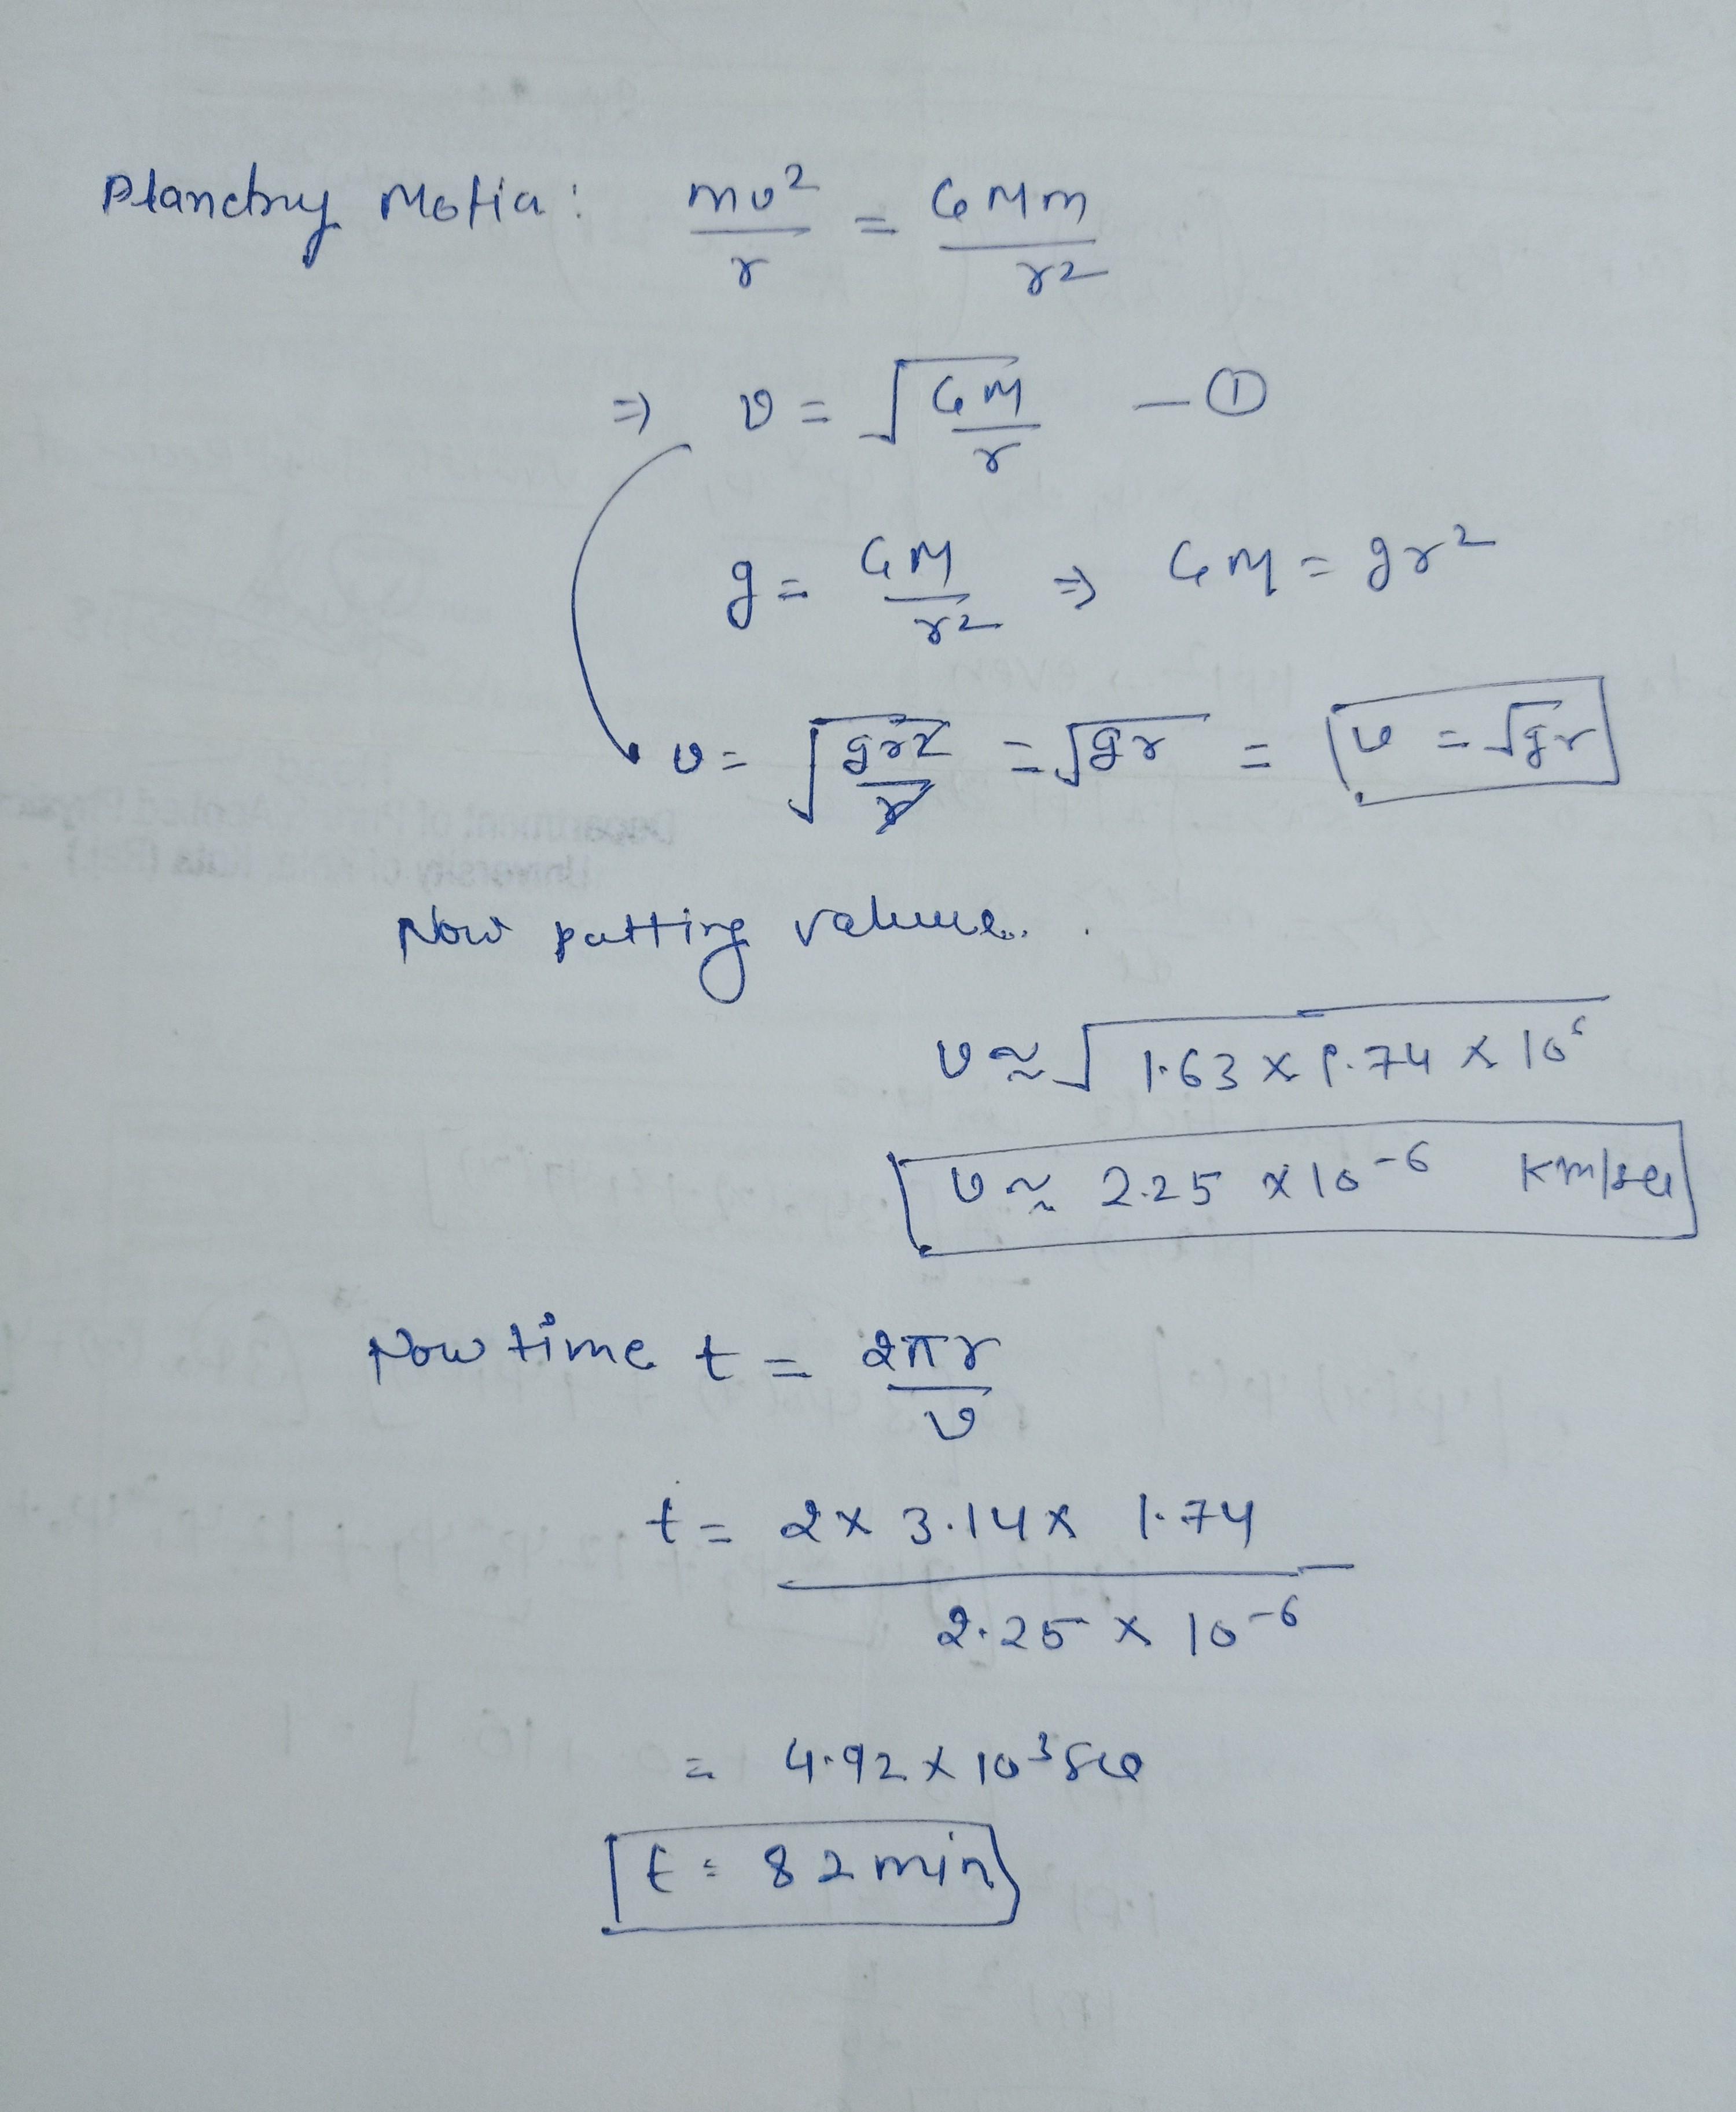 Planetry Motion : mv²/r = GMm/r²
⇒ v = √(GM/r) — ①
g = GM/r² ⇒ GM = gr²
v = √(gr²/r) = √gr = v = √gr
Now putting value.
v ≈ √(1.63 × 1.74 × 10⁶)
v ≈ 2.25 × 10⁻⁶ Km/sec
Now time t = 2πr/v
t = 2 × 3.14 × 1.74 / 2.25 × 10⁻⁶
= 4.92 × 10³ sec
t = 82 min